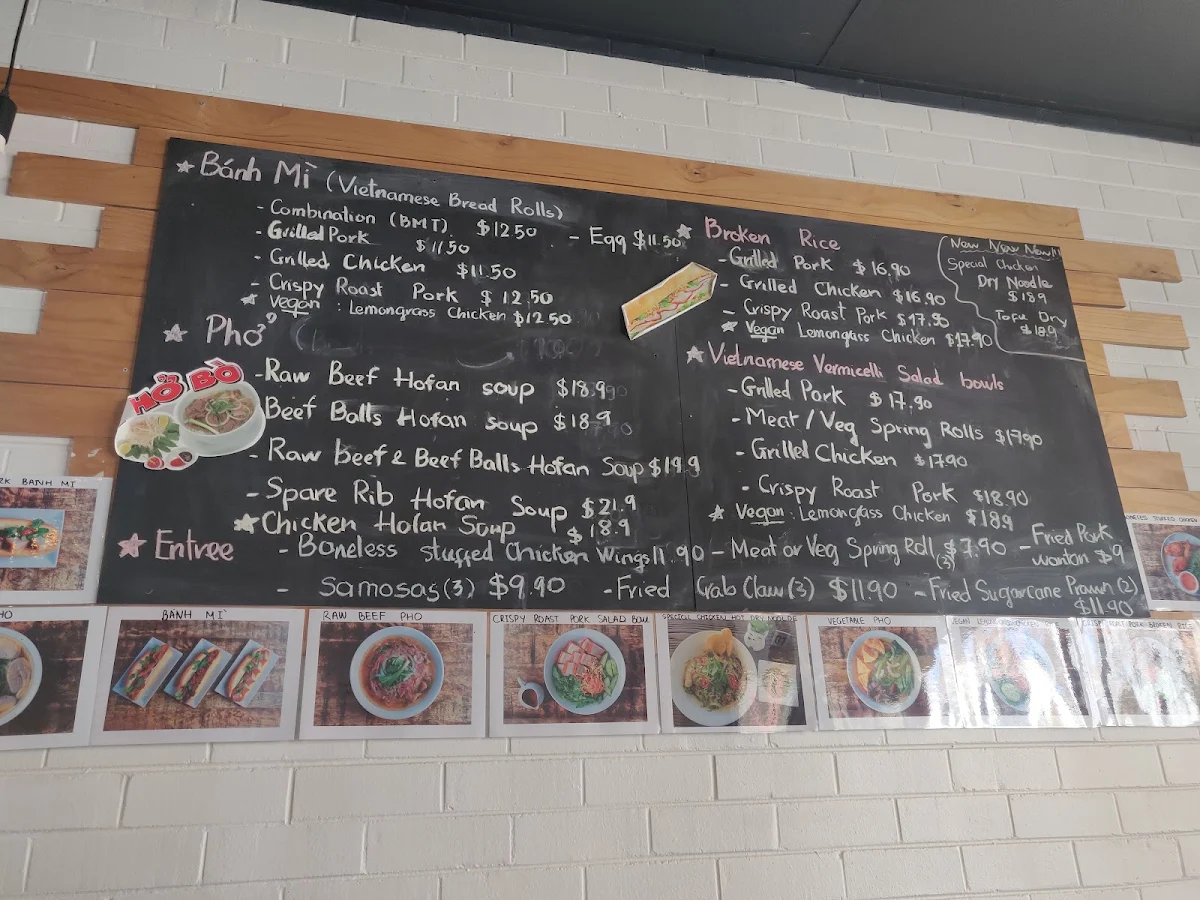 Bánh Mì (Vietnamese Bread Rolls)
- Combination (BMT) $12.50
- Egg $11.50
- Grilled Pork $11.50
- Grilled Chicken $11.50
- Crispy Roast Pork $12.50
Vegan : Lemongrass Chicken $12.50
Phở
HỞ BÒ
- Raw Beef Hofan soup $18.9
Beef Balls Hofan soup $18.9
- Raw Beef & Beef Balls Hofan Soup $19.9
- Spare Rib Hofan Soup $21.9
Chicken Hofan Soup $18.9
Broken Rice
- Grilled Pork $16.90
- Grilled Chicken $16.90
- Crispy Roast Pork $17.90
Vegan Lemongrass Chicken $17.90
New New New!!
Special Chicken
Dry Noodle
$18.9
Tofu Dry
$18.9
Vietnamese Vermicelli Salad bowls
- Grilled Pork $17.90
- Meat / Veg Spring Rolls $17.90
- Grilled Chicken $17.90
- Crispy Roast Pork $18.90
Vegan : Lemongrass Chicken $18.9
Entree
- Boneless stuffed Chicken Wings 11.90
- Meat or Veg Spring Roll (3) $7.90
- Fried Pork
wantan $9
- Samosas (3) $9.90
- Fried Crab Claw (3) $11.90
- Fried Sugarcane Prawn (2)
$11.90
RK BANH MI
HO
BANH MI
RAW BEEF PHO
CRISPY ROAST PORK SALAD BOWL
SPECIAL CHICKEN HOT DRY NOODLE
VEGETABLE PHO